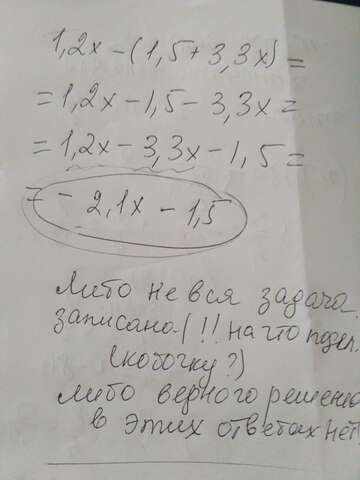 1,2x - (1,5 + 3,3x) =
= 1,2x - 1,5 - 3,3x =
= 1,2x - 3,3x - 1,5 =
= - 2,1x - 1,5
Либо не вся задача
записана (!! на что
(кобочку?)
либо верного решения
в этих ответах нет!